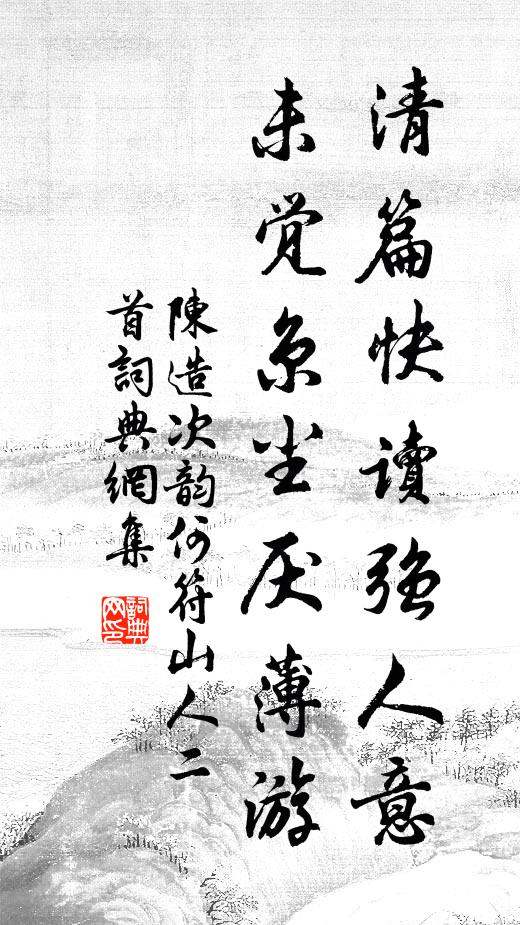 清篇快讀强人意
未觉京尘厌薄游
陳造次韵何符山人二
首詞典網集
詞典网印